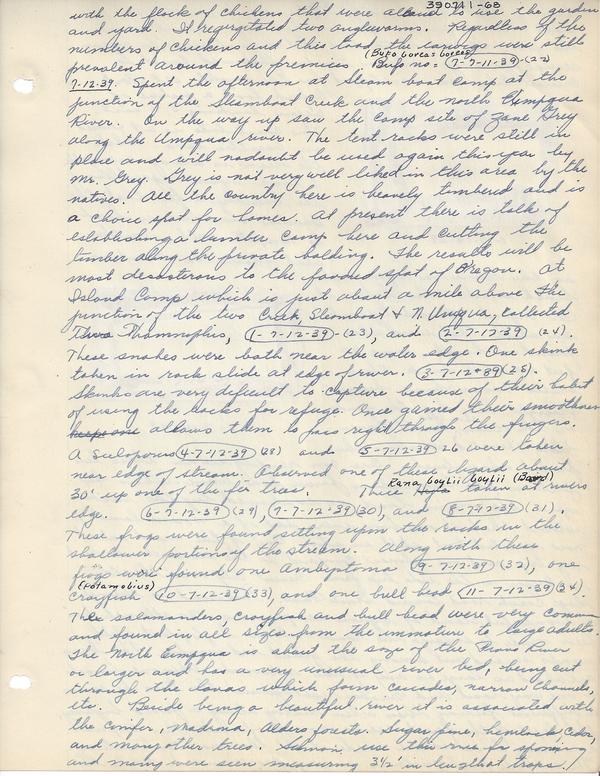 390711-68
with the flock of chickens that were allowed to use the garden
and yard. It regurgitated two angleworms. Regardless of the
numbers of chickens and this toad the earwigs were still
(Bufo boreas boreas)
prevalent around the premises Bufo no = 7-7-11-39-(22)
7-12-39. Spent the afternoon at Steam boat Camp at the
junction of the Steamboat Creek and the north Umpqua
River. On the way up saw the camp site of Zane Grey
along the Umpqua river. The tent racks were still in
place and will nodoubt be used again this year by
Mr. Grey. Grey is not very well liked in this area by the
natives. All the country here is heavely timbered and is
a choice spot for homes. At present there is talk of
establishing a lumber camp here and cutting the
timber along the private holding. The results will be
most desasterous to the favored spot of Oregon. At
Island Camp which is just about a mile above the
junction of the two Creek, Steamboat & N. Umqua, collected
Thamnophis, 1-7-12-39-(23), and 2-7-12-39 (24).
These snakes were both near the water edge. One skink
taken in rock slide at edge of river. 3-7-12-39 (25).
Skinks are very difficult to capture because of their habit
of using the rocks for refuge. Once gamed their smoothness
allows them to pass right through the fingers.
A Sceloporus 4-7-12-39 (28) and 5-7-12-39 26 were taken
near edge of stream. Observed one of these lizard about
30' up one of the fir trees. Rana boylii boylii (Baird)
Three taken at rivers
edge. 6-7-12-39 (29), 7-7-12-39 (30), and 8-7-12-39 (31).
These frogs were found setting upon the rocks in the
shallower portion of the stream. Along with these
frogs were found one Ambystoma 9-7-12-39 (32), one
(Potamobius)
crayfish 10-7-12-39 (33), and one bull head 11-7-12-39 (34).
The salamanders, crayfish and bull head were very common
and found in all sizes from the immature to large adults.
The North Umpqua is about the size of the Provo River
or larger and has a very unusual river bed, being cut
through the lavas which form cascades, narrow channels,
etc. Beside being a beautiful river it is associated with
the conifer, madrona, Alders forests. Sugar pine, hemlock, Cedar,
and many other trees. Salmon use this river for spawning
and many were seen measuring 3 1/2' in length at traps.